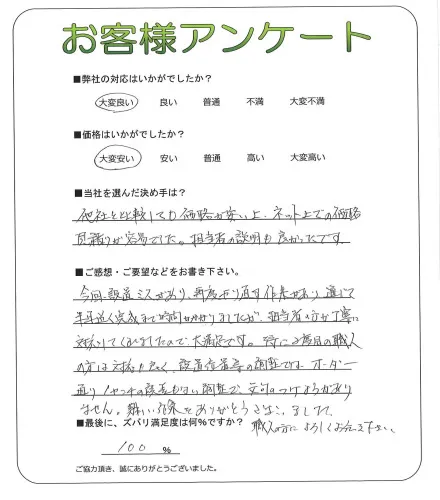 お客様アンケート
■弊社の対応はいかがでしたか?
大変良い 良い 普通 不満 大変不満
■価格はいかがでしたか?
大変安い 安い 普通 高い 大変高い
■当社を選んだ決め手は?
他社と比較しても価格が安い上、ネット上での価格
見積りが容易でした。担当者の説明も良かったです。
■ご感想・ご要望などをお書き下さい。
今回、設置ミスがあり、再度やり直す作業があり
完成まで時間がかかりましたが、担当者の方が丁寧に
対応してくれましたので、大満足です。特に2度目の職人
の方は対応も良く、設置位置等の調整です。オーダー
通り 調整で、文句のつけようがあり
ません。 ありがとうございました。
職人の方によろしくお伝え下さい。
■最後に、ズバリ満足度は何%ですか?
100 %
ご協力頂き、誠にありがとうございました。